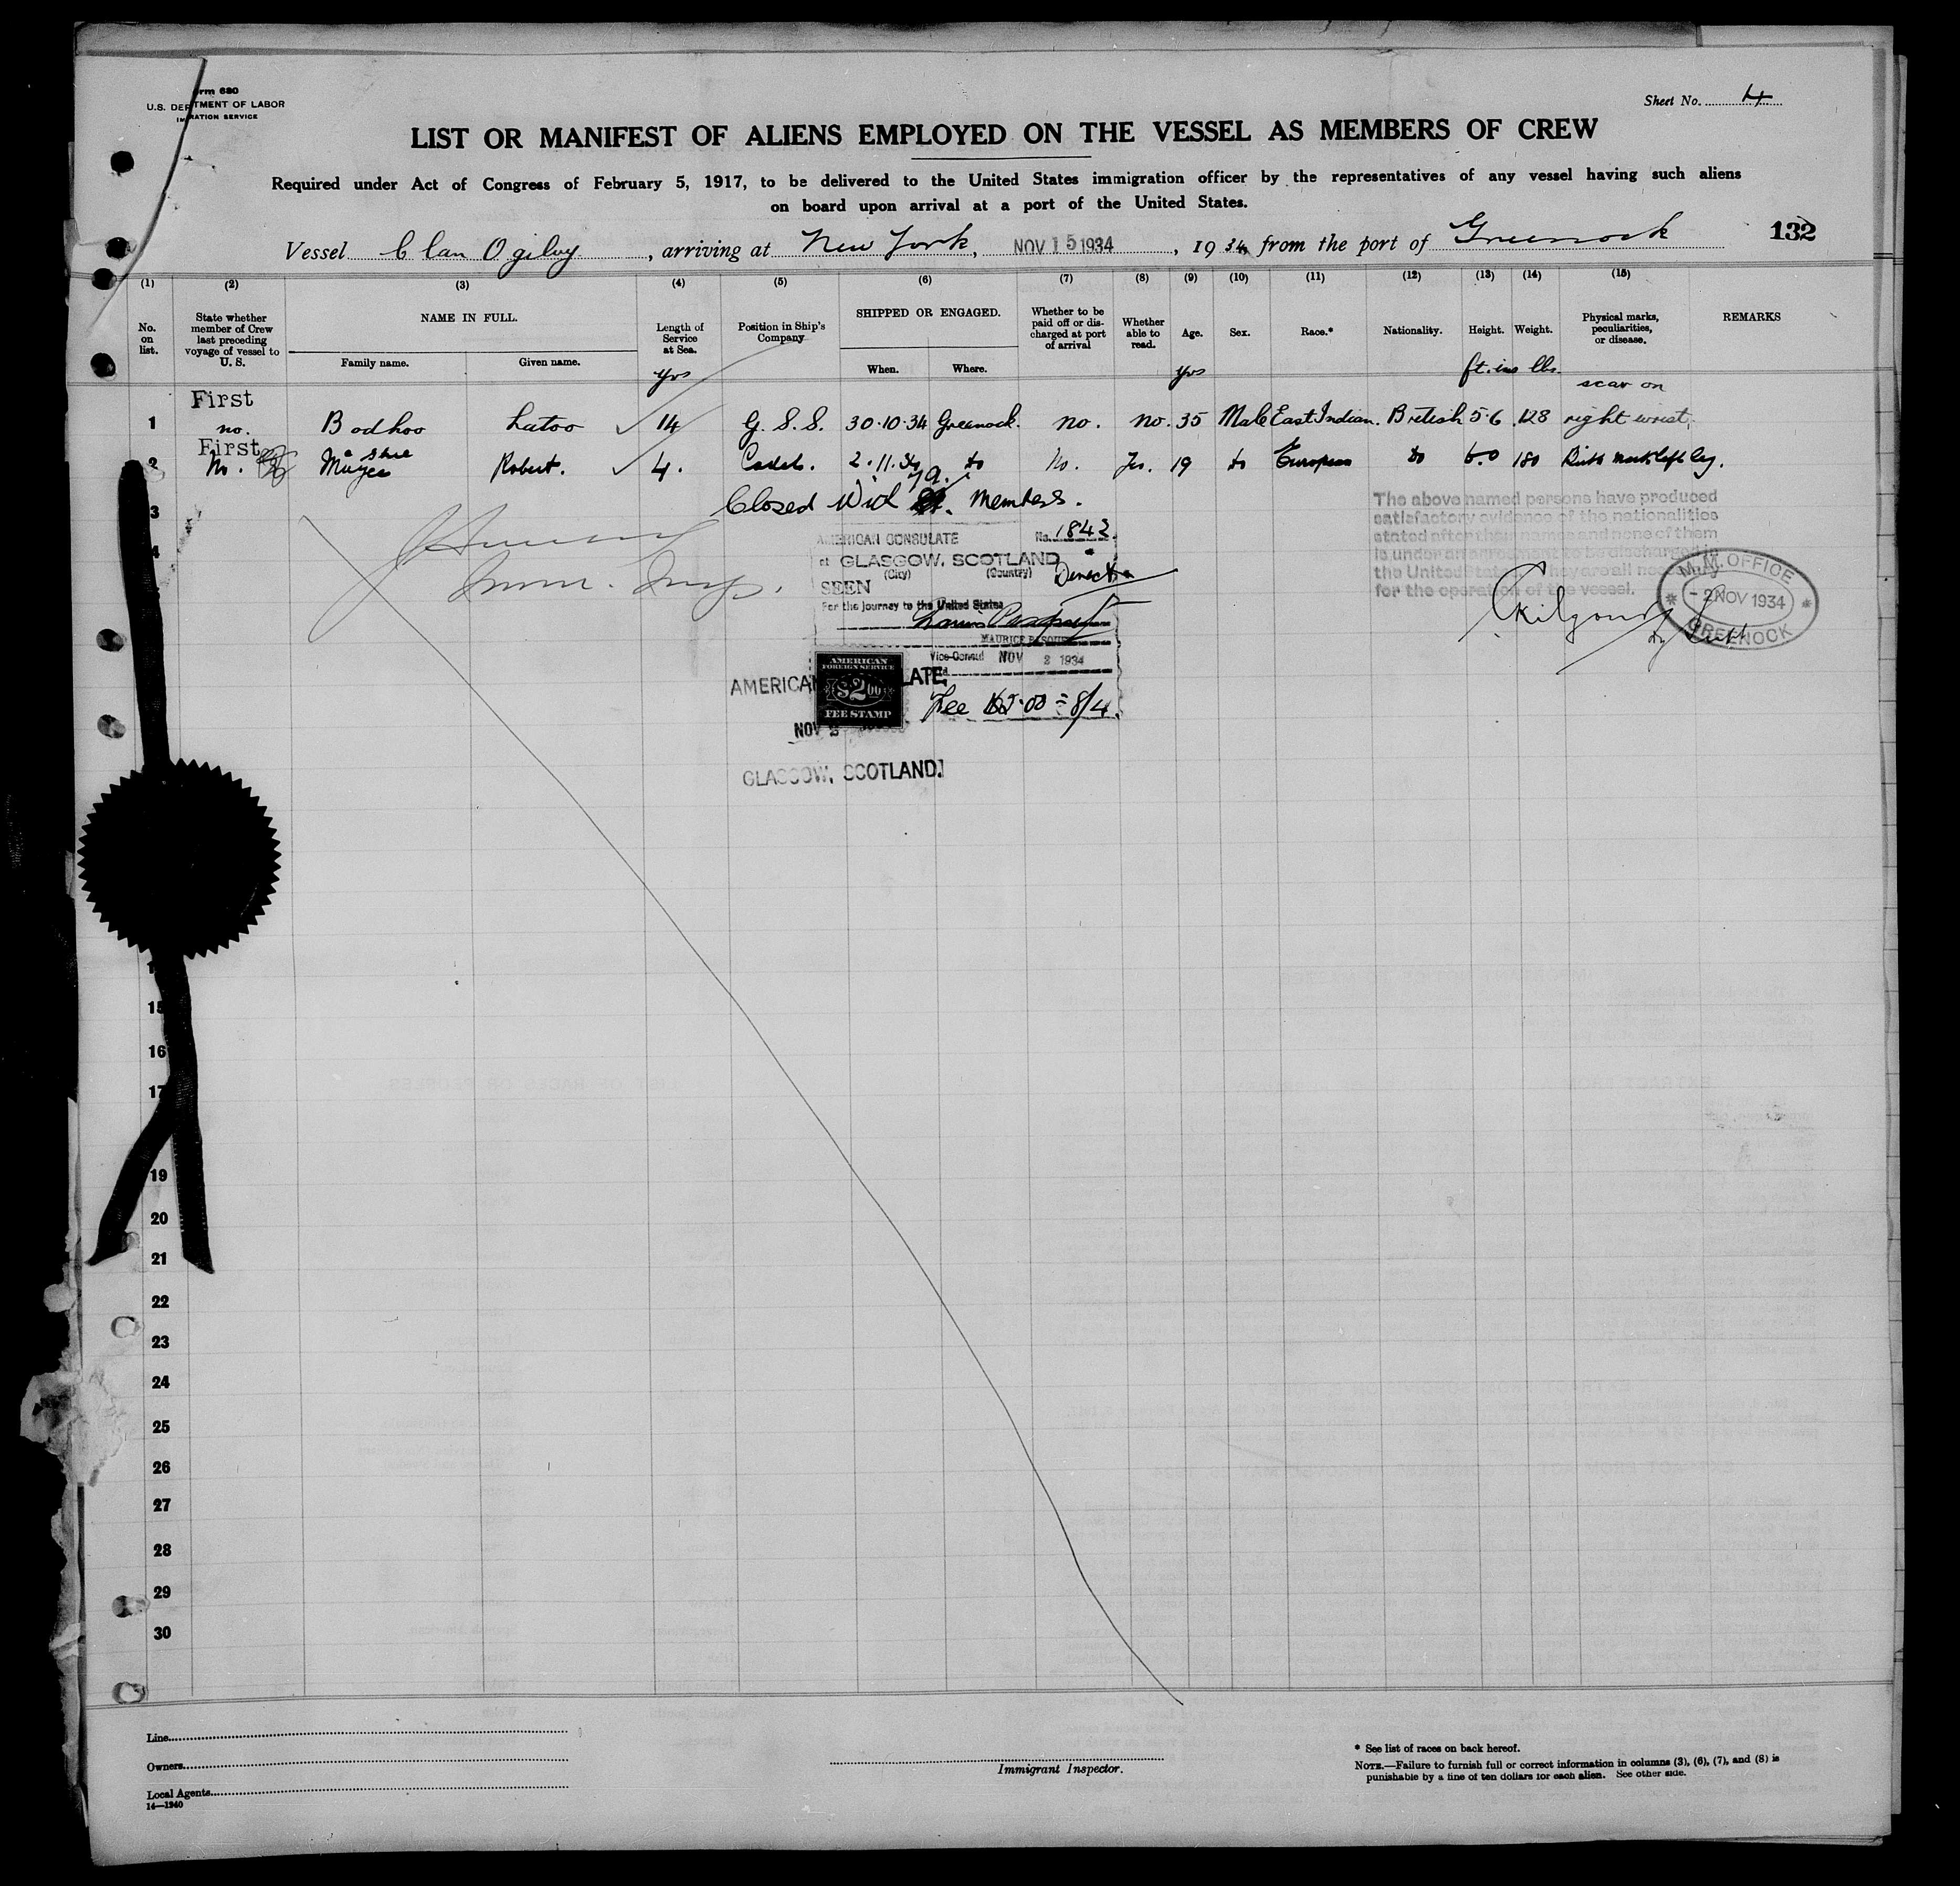 Form 680
U.S. DEPARTMENT OF LABOR
IMMIGRATION SERVICE
Sheet No. 4
LIST OR MANIFEST OF ALIENS EMPLOYED ON THE VESSEL AS MEMBERS OF CREW
Required under Act of Congress of February 5, 1917, to be delivered to the United States immigration officer by the representatives of any vessel having such aliens
on board upon arrival at a port of the United States.
Vessel Clan Ogilvy, arriving at New York, NOV 15 1934, 1934 from the port of Greenock 132
(1) (2) (3) (4) (5) (6) (7) (8) (9) (10) (11) (12) (13) (14) (15)
No. on list. State whether member of Crew last preceding voyage of vessel to U. S. NAME IN FULL. Family name. Given name. Length of Service at Sea. Position in Ship's Company SHIPPED OR ENGAGED. When. Where. Whether to be paid off or discharged at port of arrival Whether able to read. Age. Sex. Race.* Nationality. Height. Weight. Physical marks, peculiarities, or disease. REMARKS
yrs yrs ft. ins lbs.
First scar on
1 no. Bodhoo Latoo 14 G. S. S. 30.10.34 Greenock. no. no. 35 Male East Indian. British 5.6 128 right wrist.
First
2 No. Robert. 4. Cadet. 2.11.34 do No. Yes. 19 do European do 6.0 180 Birth mark left leg.
3 Closed With 79. Members.
The above named persons have produced
satisfactory evidence of the nationalities
stated after their names and none of them
is under an agreement to be discharged in
the United States. They are all necessary
for the operation of the vessel.
4
AMERICAN CONSULATE No. 1843
at GLASGOW, SCOTLAND
(City) (Country)
SEEN Direct
For the journey to the United States
MAURICE PASQUET
Vice-Consul NOV 2 1934
Fee $2.00 = 8/4.
M.M. OFFICE
2 NOV 1934
GREENOCK
Kilgour
AMERICAN CONSULATE
AMERICAN
FOREIGN SERVICE
$2.00
FEE STAMP
NOV 2
GLASGOW, SCOTLAND.
15
16
17
19
20
21
22
23
24
25
26
27
28
29
30
Line
Owners
Local Agents
14—1240
Immigrant Inspector.
* See list of races on back hereof.
NOTE.—Failure to furnish full or correct information in columns (3), (6), (7), and (8) is
punishable by a fine of ten dollars for each alien. See other side.